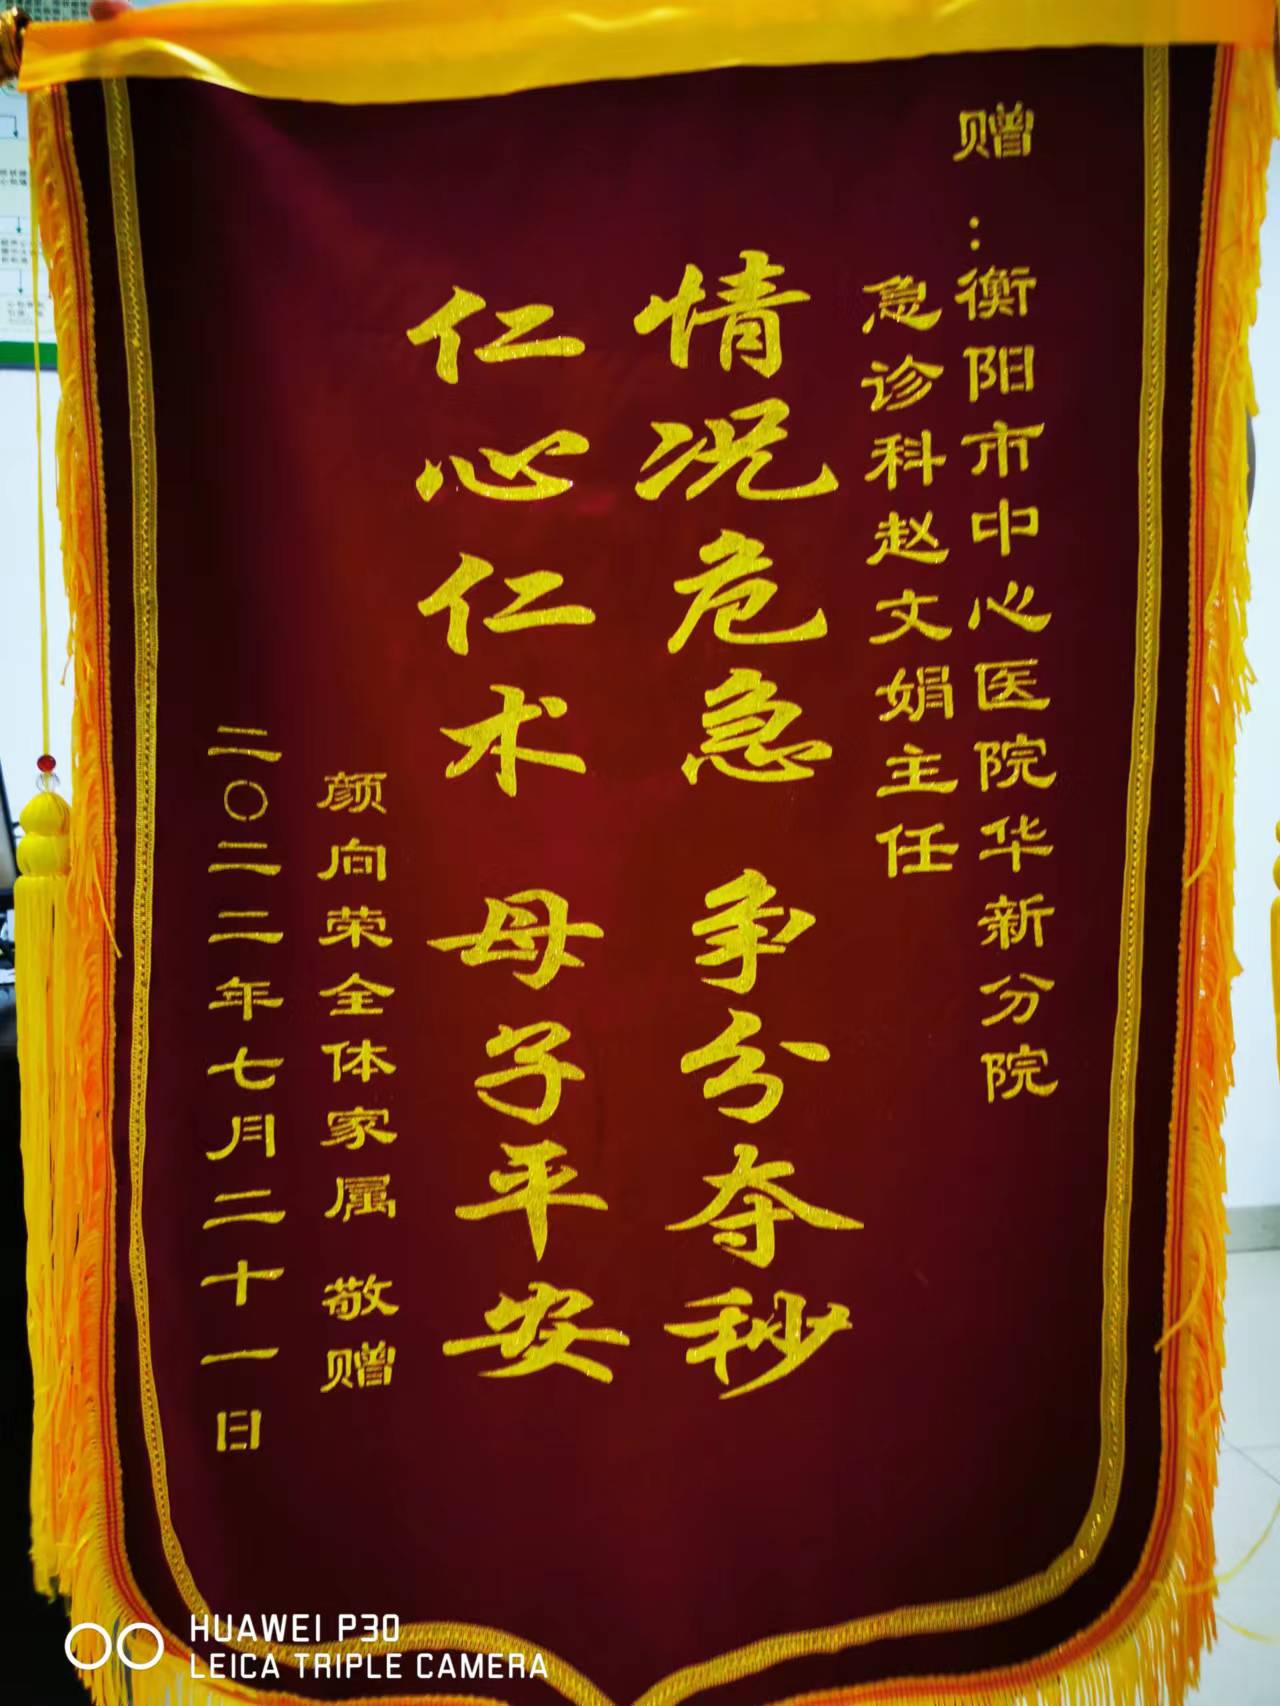 赠：衡阳市中心医院华新分院
急诊科赵文娟主任
情况危急 争分夺秒
仁心仁术 母子平安
颜向荣全体家属 敬赠
二〇二二年七月二十一日
HUAWEI P30
LEICA TRIPLE CAMERA